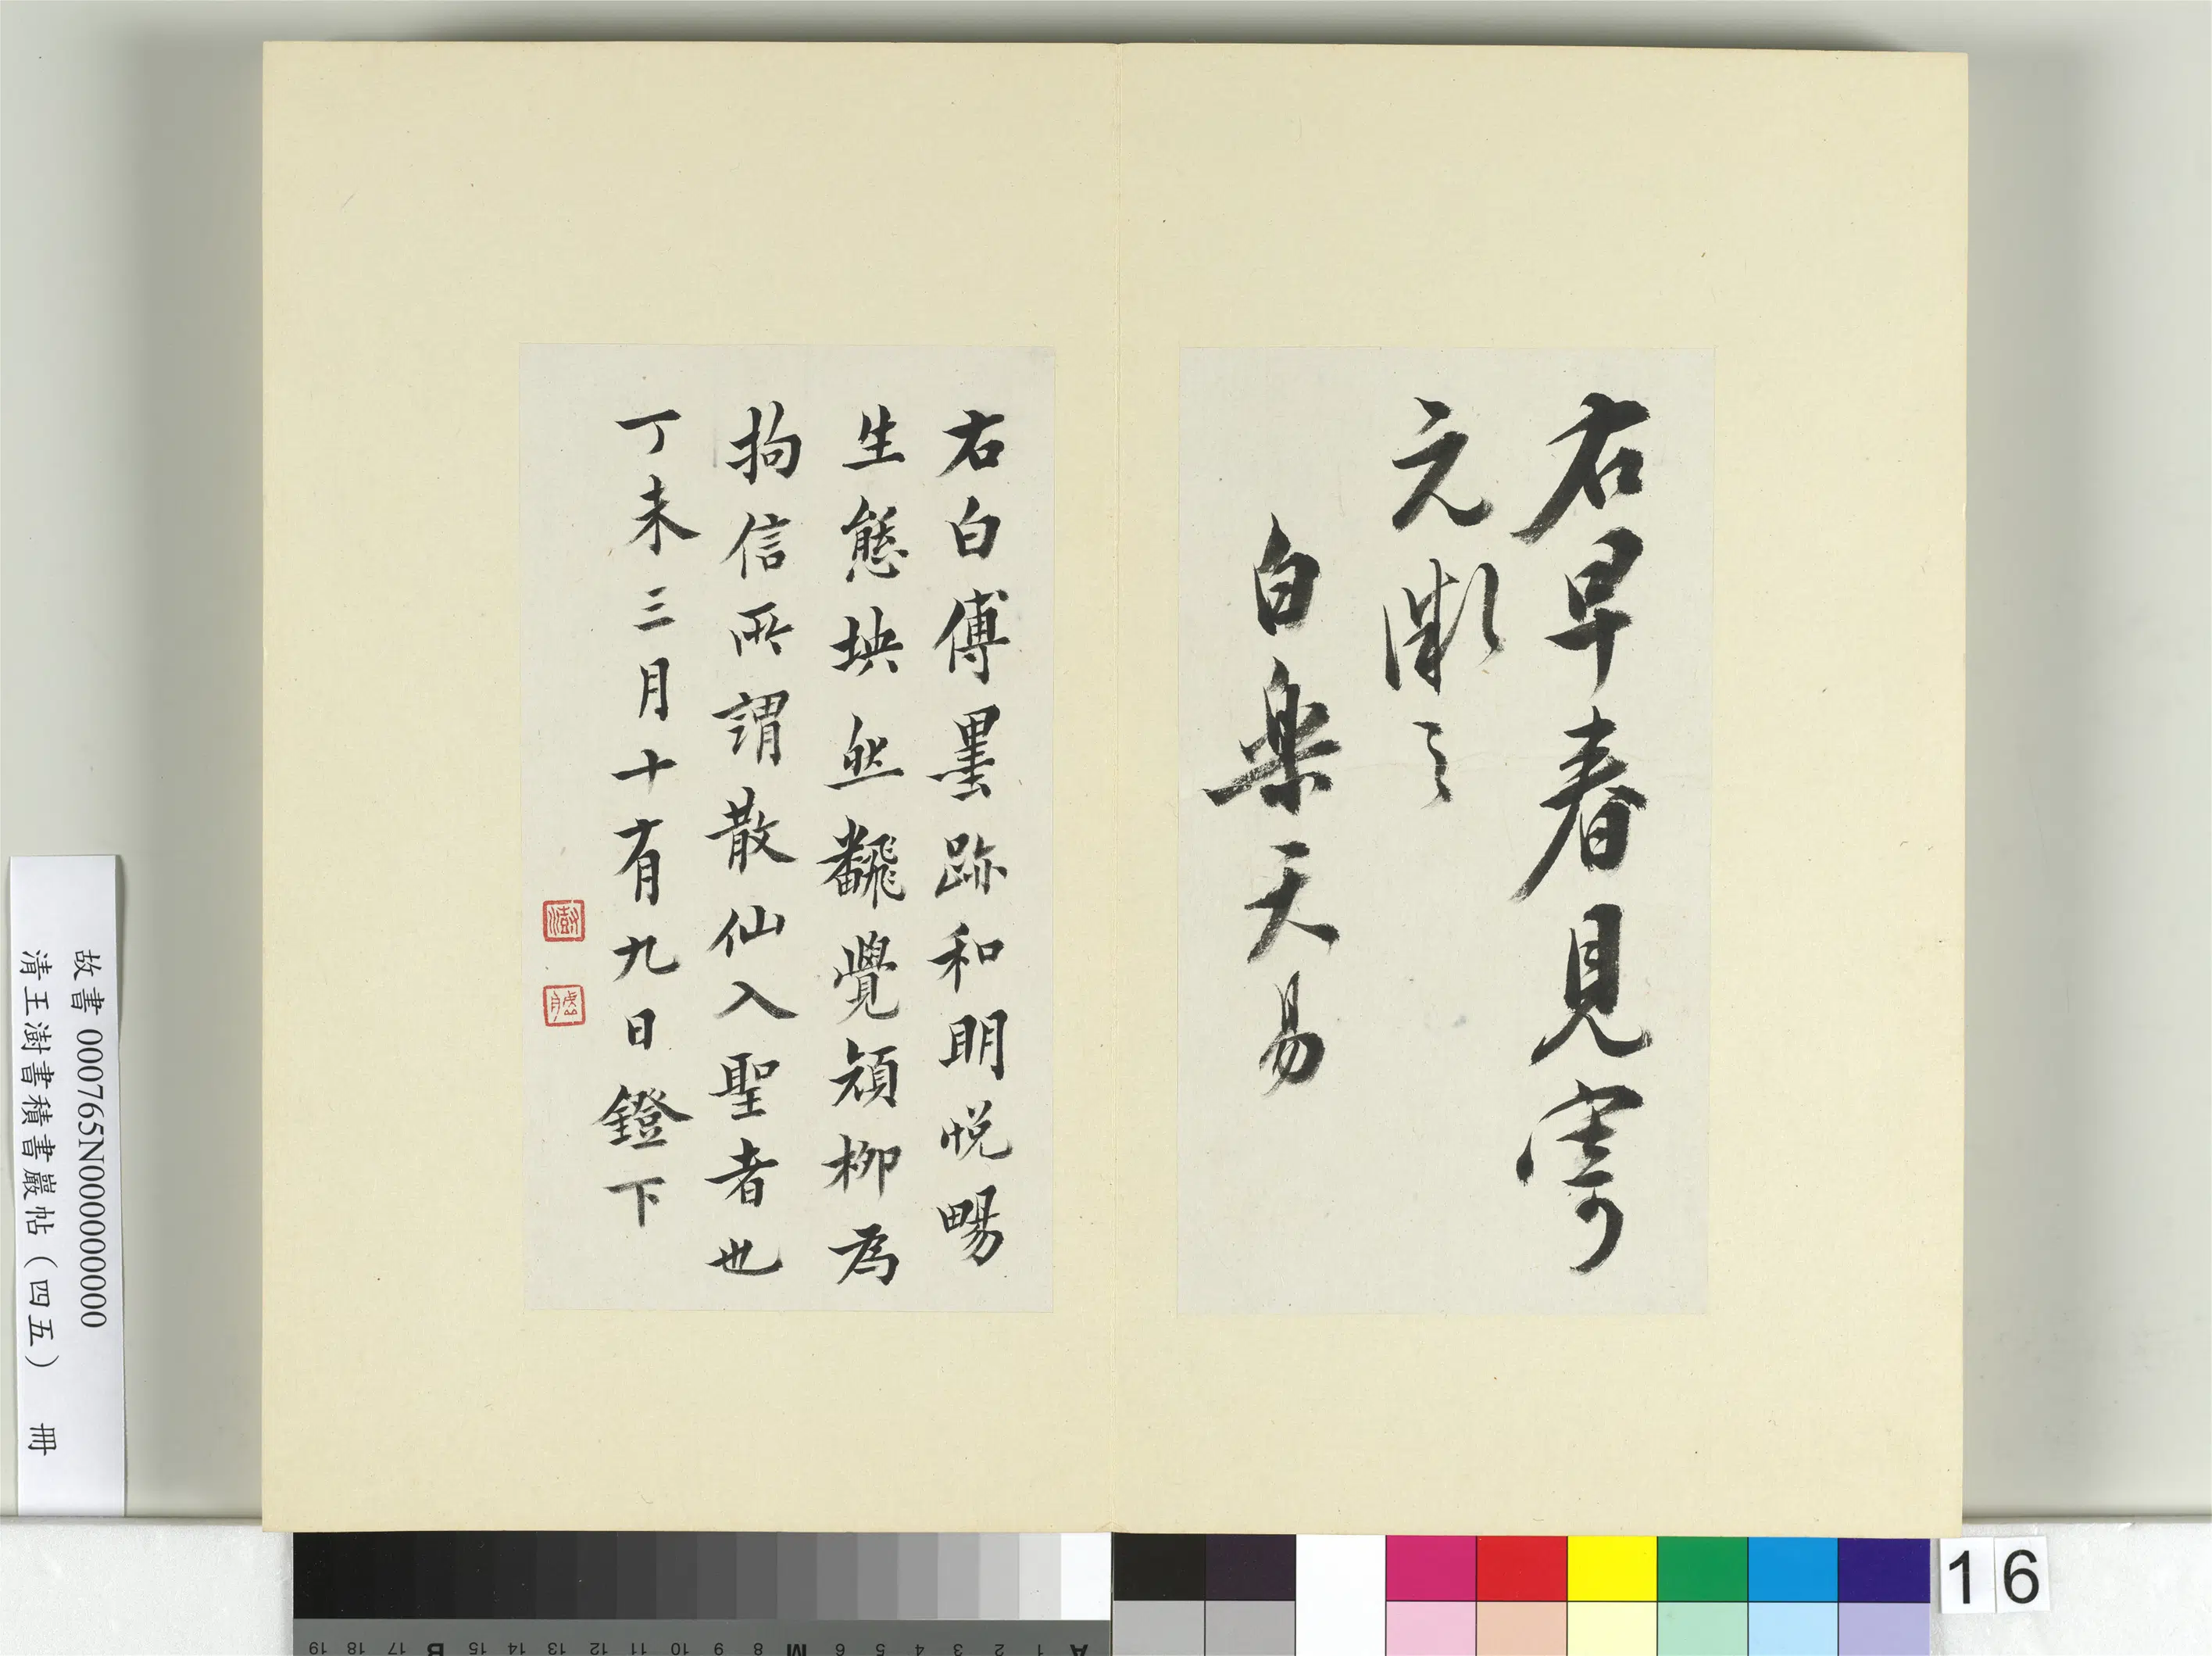 右早春見寄
元微之
白樂天易
右白傅墨跡和明悅暢
生態坱然飜覺顏柳為
拘信所謂散仙入聖者也
丁未三月十有九日鐙下
澍
故書 000765N000000000
清王澍書積書巖帖（四五） 冊
16
A 1 2 3 4 5 6 M 8 9 10 11 12 13 14 15 B 17 18 19